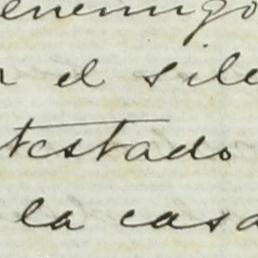 enemigo
el sile
testado
la casa